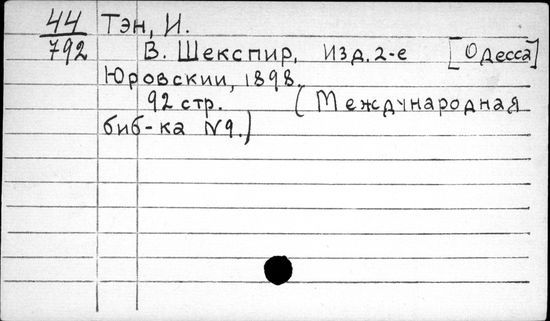 44 Тэн, И.
792 В. Шекспир, изд. 2-е [Одесса]
Юровскии, 1898.
92 стр. (Международная
биб-ка №9.)